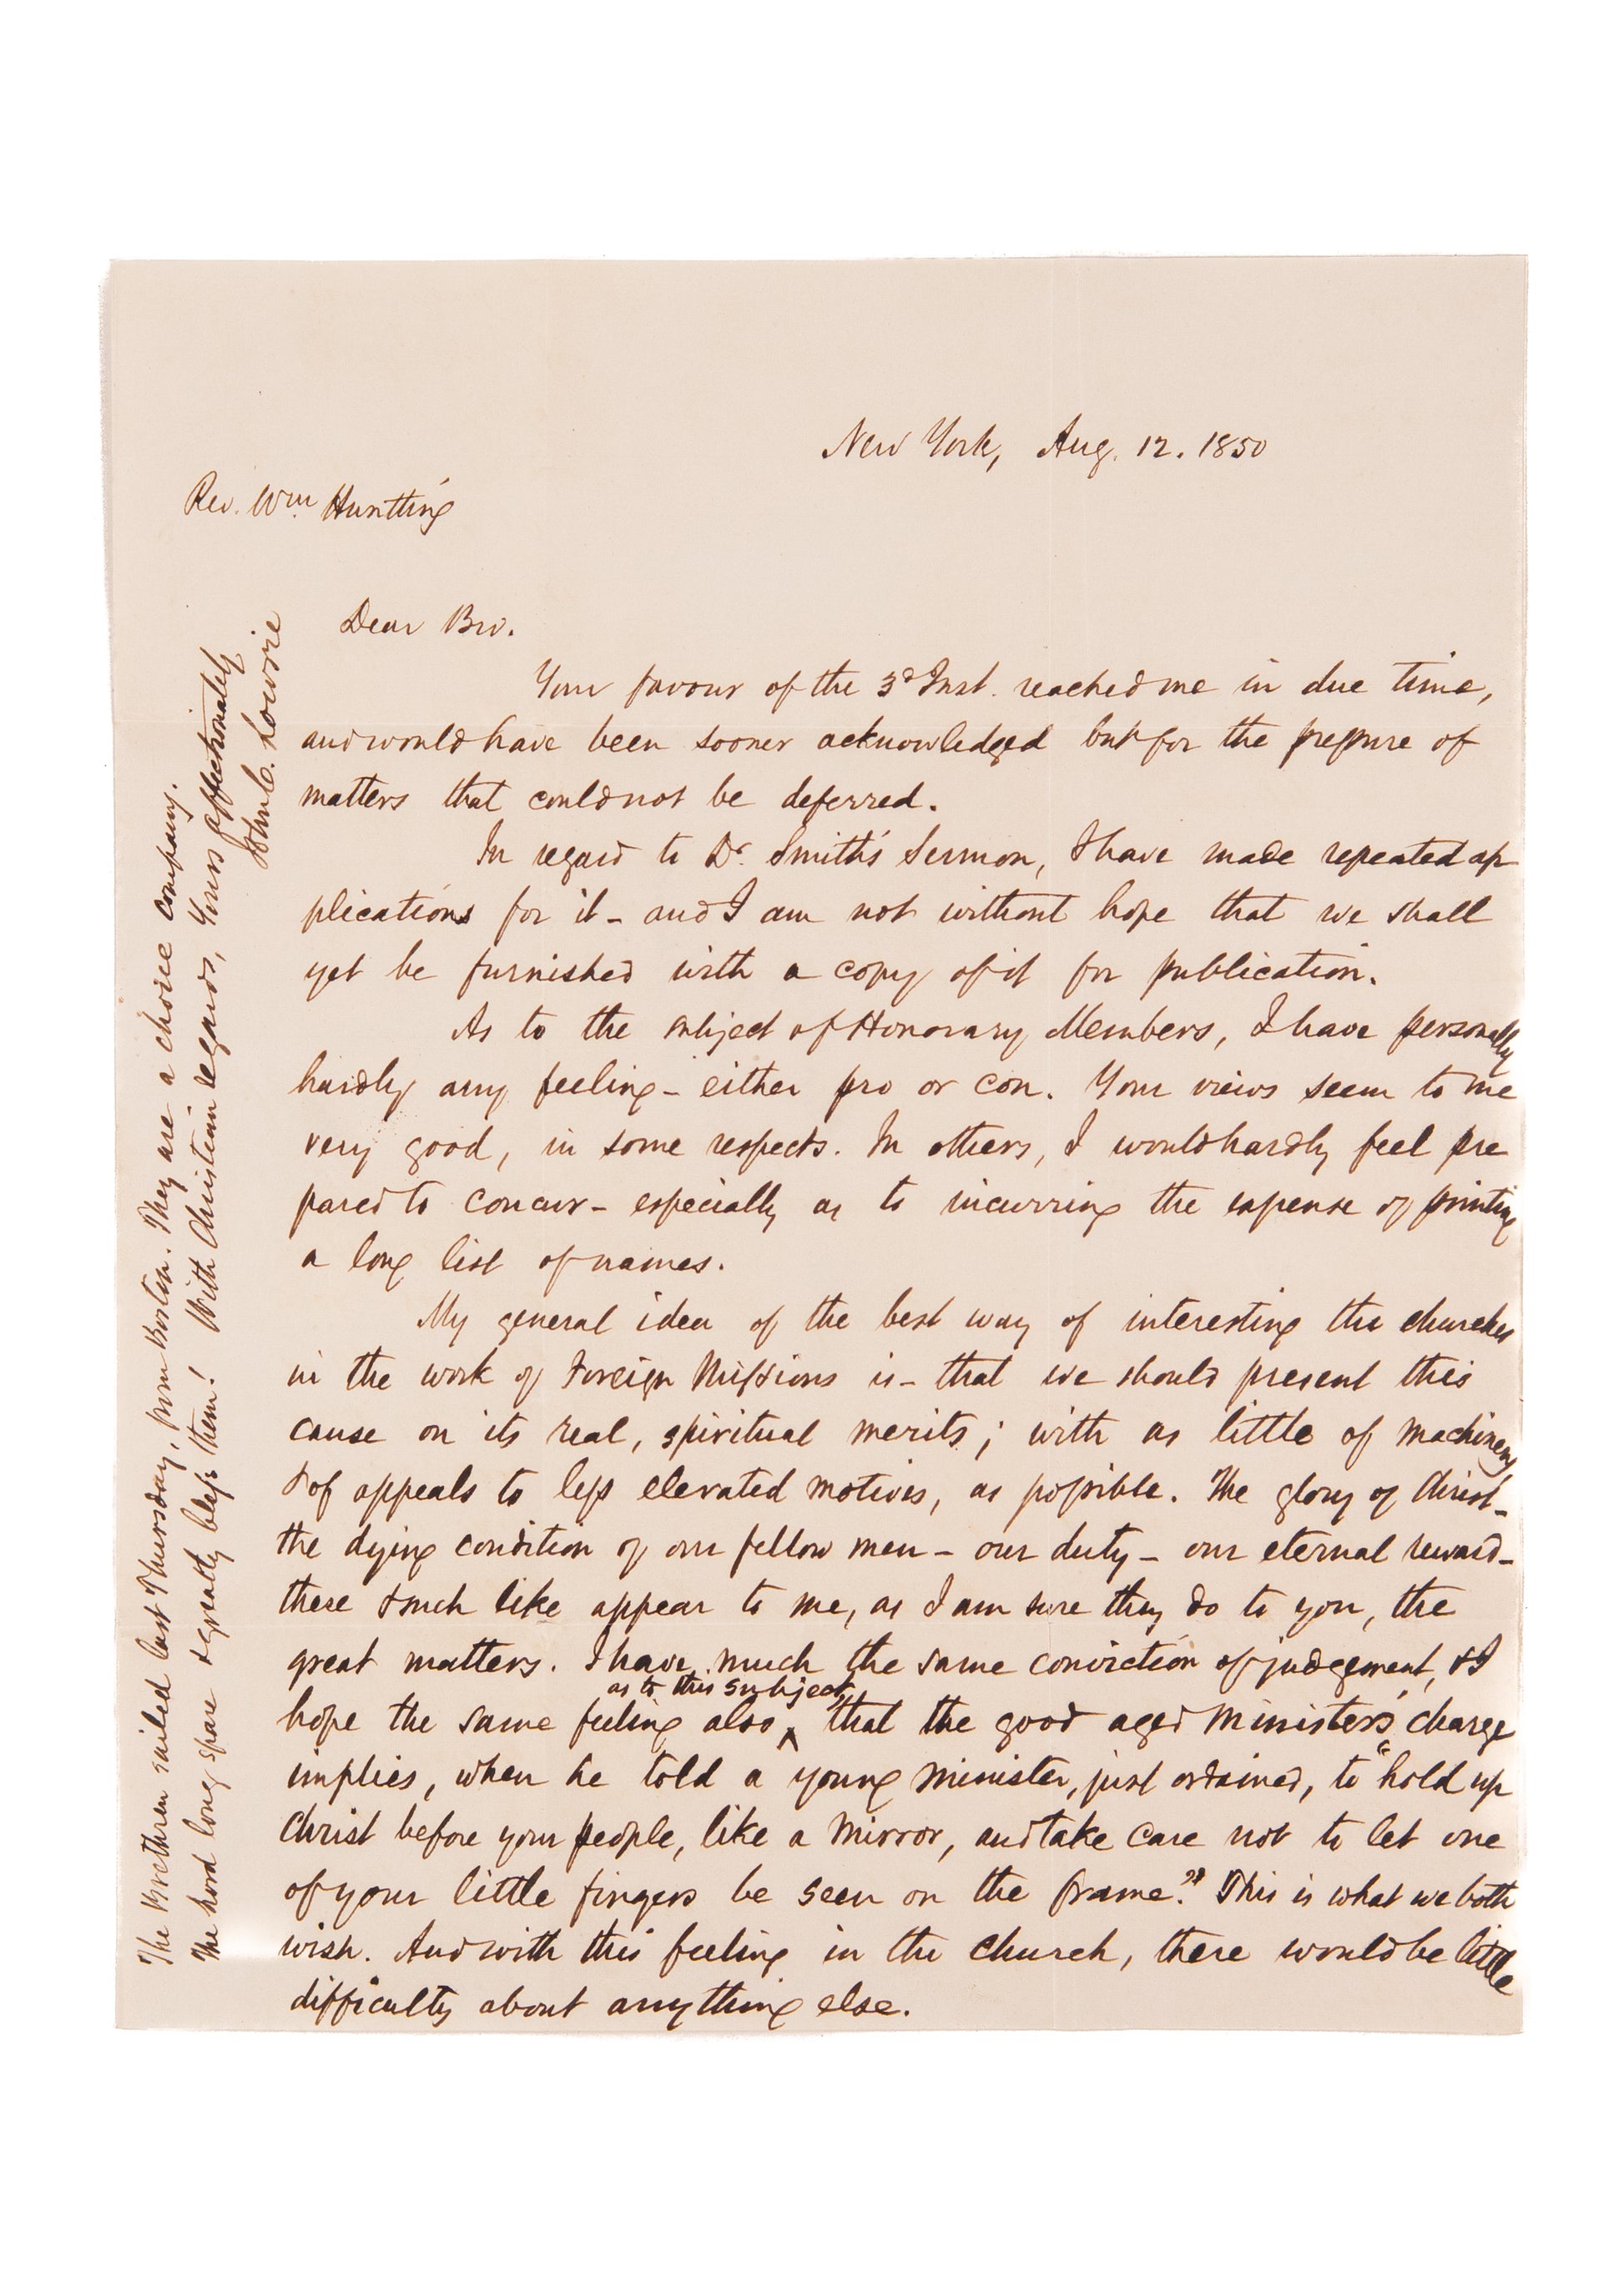 New York, Aug. 12. 1850
Rev. Wm. Huntting
Dear Bro.
Your favour of the 3d Inst. reached me in due time,
and would have been sooner acknowledged but for the pressure of
matters that could not be deferred.
In regard to Dr. Smith's Sermon, I have made repeated ap
plications for it - and I am not without hope that we shall
yet be furnished with a copy of it for publication.
As to the subject of Honorary Members, I have personally
hardly any feeling - either pro or con. Your views seem to me
very good, in some respects. In others, I would hardly feel pre
pared to concur - especially as to incurring the expense of printing
a long list of names.
My general idea of the best way of interesting the churches
in the work of Foreign Missions is - that we should present this
cause on its real, spiritual merits; with as little of machinery
& of appeals to less elevated motives, as possible. The glory of Christ -
the dying condition of our fellow men - our duty - our eternal reward -
these & such like appear to me, as I am sure they do to you, the
great matters. I have much the same conviction of judgement, & I
as to this subject,
hope the same feeling also ^ that the good aged minister's charge
implies, when he told a young minister, just ordained, to "hold up
Christ before your people, like a mirror, and take care not to let one
of your little fingers be seen on the frame." This is what we both
wish. And with this feeling in the church, there would be little
difficulty about anything else.
The Brethren sailed last Thursday, from Boston. They are a choice company.
The Lord long spare & greatly bless them! With Christian regards, Yours affectionately
John C. Lowrie